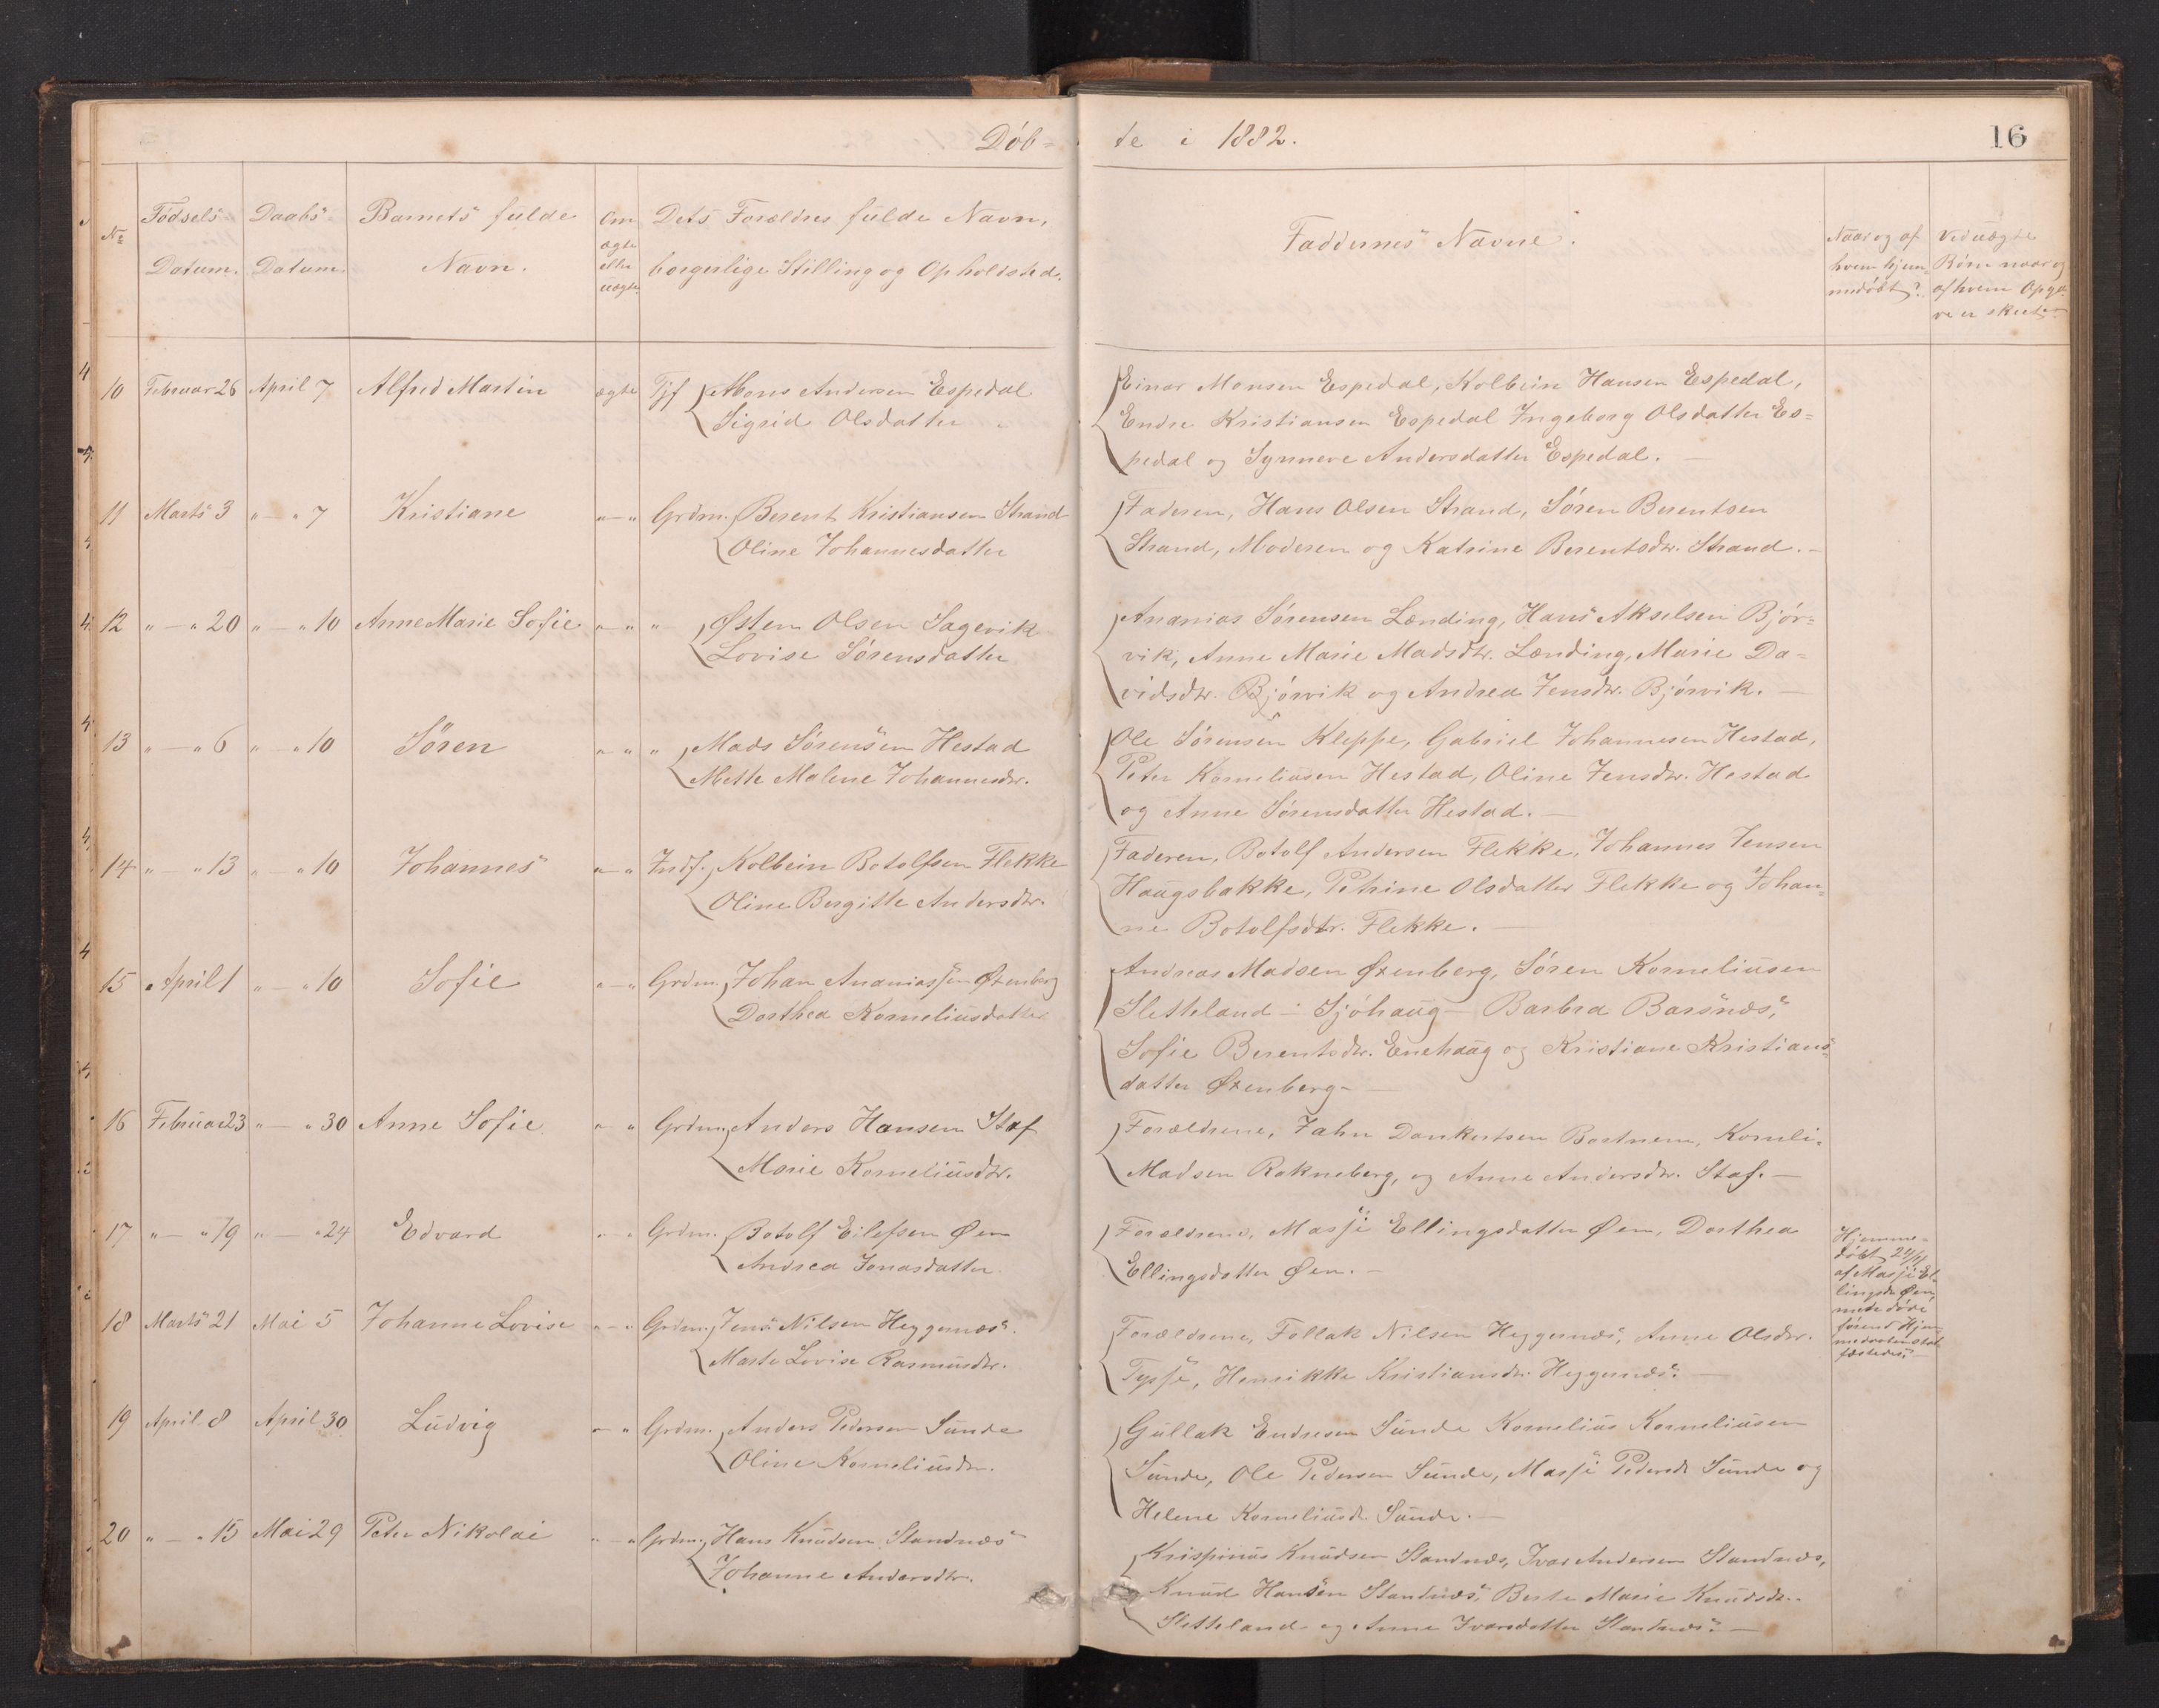 Döb=
te i 1882.
16
No
Födsels Datum.
Daabs Datum.
Barnets fulde Navn.
Om ægte eller uægte
Dets Forældres fulde Navn, borgerlige Stilling og Opholdsted.
Faddernes Navne.
Naar og af hvem hjemmedöbt?
Ved uægte Börn naar og af hvem Opgave er skeet
10 Februar 26 April 7 Alfred Martin ægte Pjf Mons Andersen Espedal
Sigrid Olsdatter
Einar Monsen Espedal, Kolbein Hansen Espedal,
Endre Kristiansen Espedal Ingeborg Olsdatter Es=
pedal og Synneve Andersdatter Espedal. —
11 Marts 3 " — " 7 Kristiane " — " Grdm. Berent Kristiansen Strand
Oline Johannesdatter
Faderen, Hans Olsen Strand, Sören Berentsen
Strand, Moderen og Katrine Berentsdtr. Strand. —
12 " — " 20 " — " 10 Anne Marie Sofie " — " " Østen Olsen Sagevik
Lovise Sörensdatter
Ananias Sörensen Lænding, Hans Akselsen Björ=
vik, Anne Marie Madsdtr. Lænding, Marie Da=
vidsdtr. Bjórvik og Andrea Jensdtr. Bjórvik. —
13 " — " 6 " — " 10 Sören " — " " Mads Sörensen Hestad
Mette Malene Johannesdtr.
Ole Sörensen Kleppe, Gabriel Johannesen Hestad,
Peter Korneliusen Hestad, Oline Jensdtr. Hestad
og Anne Sörensdatter Hestad. —
14 " — " 13 " — " 10 Johannes " — " Indf. Kolbein Botolfsen Flekke
Oline Bergitte Andersdtr.
Faderen, Botolf Andersen Flekke, Johannes Jensen
Haugsbakke, Petrine Olsdatter Flekke og Johan=
ne Botolfsdtr. Flekke. —
15 " April 1 " — " 10 Sofie " — " Grdm. Johan Ananiassen Øxenberg
Dorthea Korneliusdatter
Andreas Madsen Øxenberg, Sören Korneliusen
Sletteland — Sjöhaug — Barbra Barsnæs,
Sofie Berentsdtr. Enehaug og Kristiane Kristians=
datter Øxenberg. —
16 Februar 23 " — " 30 Anne Sofie " " Grdm. Anders Hansen Staf
Marie Korneliusdtr.
Forældrene, Jahn Dankertsen Bortnem, Korneli=
Madsen Rakneberg, og Anne Andersdtr. Staf. —
17 " — " 19 " — " 24 Edvard " " Grdm. Botolf Eilefsen Øen
Andrea Jonasdatter
Forældrene, Massi Ellingsdatter Øen, Dorthea
Ellingsdatter Øen. —
Hjemme=
döbt 24/4
af Massi El=
lingsdr Øen,
men döde
förend Hjem
medaaben stad
fæstedes. —
18 Marts 21 Mai 5 Johanne Lovise " — " Grdm. Jens Nilsen Heggenæs.
Marte Lovise Rasmusdtr.
Forældrene, Follak Nilsen Heggenæs, Anne Olsdtr.
Tysse, Henrikke Kristiansdtr. Heggenæs. —
19 April 8 April 30 Ludvig " — " Grdm. Anders Pedersen Sunde
Oline Korneliusdtr.
Gullak Endresen Sunde Kornelius Korneliusen
Sunde, Ole Pedersen Sunde, Massi Pedersdtr Sunde og
Helene Korneliusd. Sunde. —
20 " — " 15 Mai 29 Peter Nikolai " — " Grdm. Hans Knudsen Standnæs
Johanne Andersdtr.
Krispinus Knudsen Standnæs, Ivar Andersen Standnæs,
Knud Hansen Standnæs, Berte Marie Knudsdtr.
Sletteland og Anne Ivarsdatter Standnæs. —